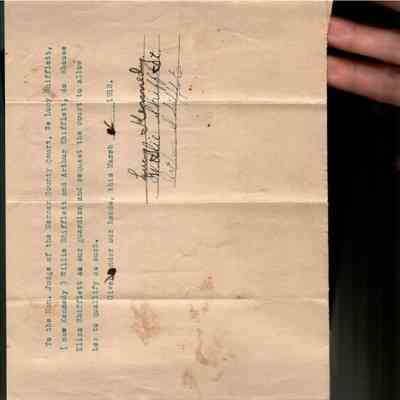 To the Hon. Judge of the Mercer County Court, We Lucy Shifflett,
( now Kennedy ) Willie Shifflett and Arthur Shifflett, do choose
Eliza Shifflett as our guardian and request the court to allow
her to qualify as such.
Given under our hands, this March 1918.
Lucy Kennedy
Willie Shifflett
Shifflett